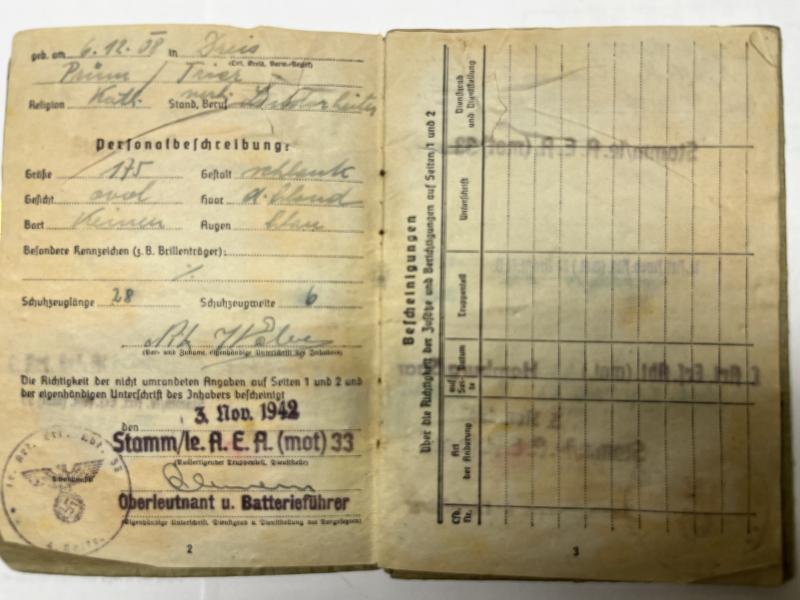 geb. am 6.12.08 in Dreis
(Ort, Kreis, Verw.-Bezirk)
Prüm / Trier
Religion Kath. Stand, Beruf verh.
Personalbeschreibung:
Größe 175 Gestalt schlank
Gesicht oval Haar d. blond
Bart Keinen Augen blau
Besondere Kennzeichen (z. B. Brillenträger):
%
Schuhzeuglänge 28 Schuhzeugweite 6
(Vor- und Zuname, eigenhändige Unterschrift des Inhabers)
Die Richtigkeit der nicht umrandeten Angaben auf Seiten 1 und 2 und
der eigenhändigen Unterschrift des Inhabers bescheinigt
den 3. Nov. 1942
Stamm/le. A. E. A. (mot) 33
(Ausfertigender Truppenteil, Dienststelle)
Oberleutnant u. Batterieführer
(Eigenhändige Unterschrift, Dienstgrad u. Dienststellung des Vorgesetzten)
2
Bescheinigungen
über die Richtigkeit der Zusätze und Berichtigungen auf Seiten 1 und 2
Lfd. Nr.
Art der Änderung
Datum
auf Seite
Truppenteil
Unterschrift
Dienstgrad und Dienststellung
3